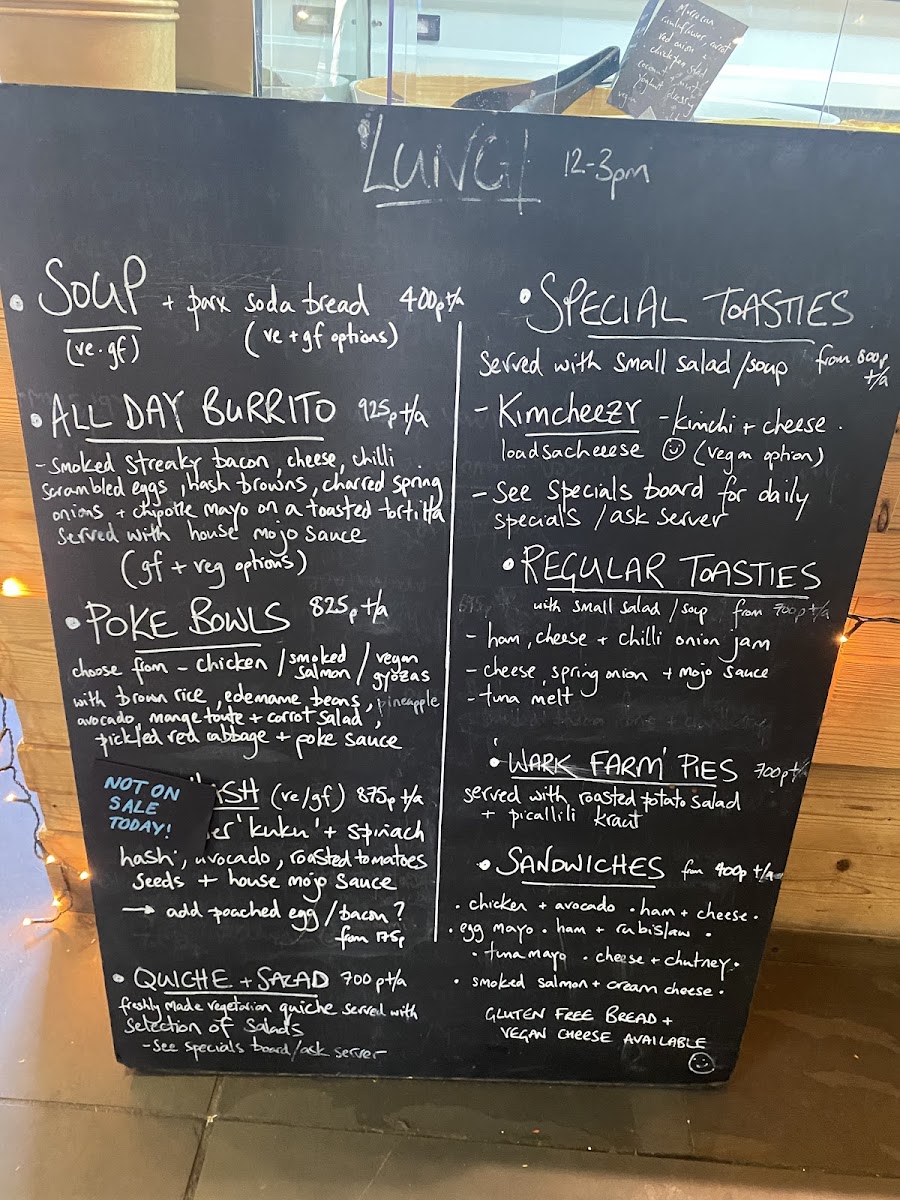 Moroccan
cauliflower, carrot
red onion +
chickpea salad
coconut + mint
yoghurt dressing
vegan
LUNCH 12-3pm
• SOUP + parx soda bread 400p t/a
(ve·gf) (ve + gf options)
• ALL DAY BURRITO 925p t/a
- smoked streaky bacon, cheese, chilli
scrambled eggs, hash browns, charred spring
onions + chipotle mayo on a toasted tortilla
served with house mojo sauce
(gf + veg options)
• POKE BOWLS 825p t/a
choose from - chicken / smoked salmon / vegan gyozas
with brown rice, edemame beans, pineapple
avocado, mange toute + carrot salad,
pickled red cabbage + poke sauce
NOT ON
SALE
TODAY!
SH (ve/gf) 875p t/a
er 'kuku' + spinach
hash, avocado, roasted tomatoes
seeds + house mojo sauce
→ add poached egg / bacon?
from 175p
• QUICHE + SALAD 700p t/a
freshly made vegetarian quiche served with
selection of salads
- see specials board/ask server
• SPECIAL TOASTIES
served with small salad /soup from 800p
t/a
- KIMCHEEZY - kimchi + cheese.
loadsacheeese (vegan option)
- see specials board for daily
specials / ask server
• REGULAR TOASTIES
with small salad / soup from 700p t/a
- ham, cheese + chilli onion jam
- cheese, spring onion + mojo sauce
- tuna melt
• 'WARK FARM' PIES 700p t/a
served with roasted potato salad
+ picallili kraut
• SANDWICHES from 400p t/a
• chicken + avocado • ham + cheese •
• egg mayo • ham + rubislaw •
• tuna mayo • cheese + chutney •
• smoked salmon + cream cheese •
GLUTEN FREE BREAD +
VEGAN CHEESE AVAILABLE